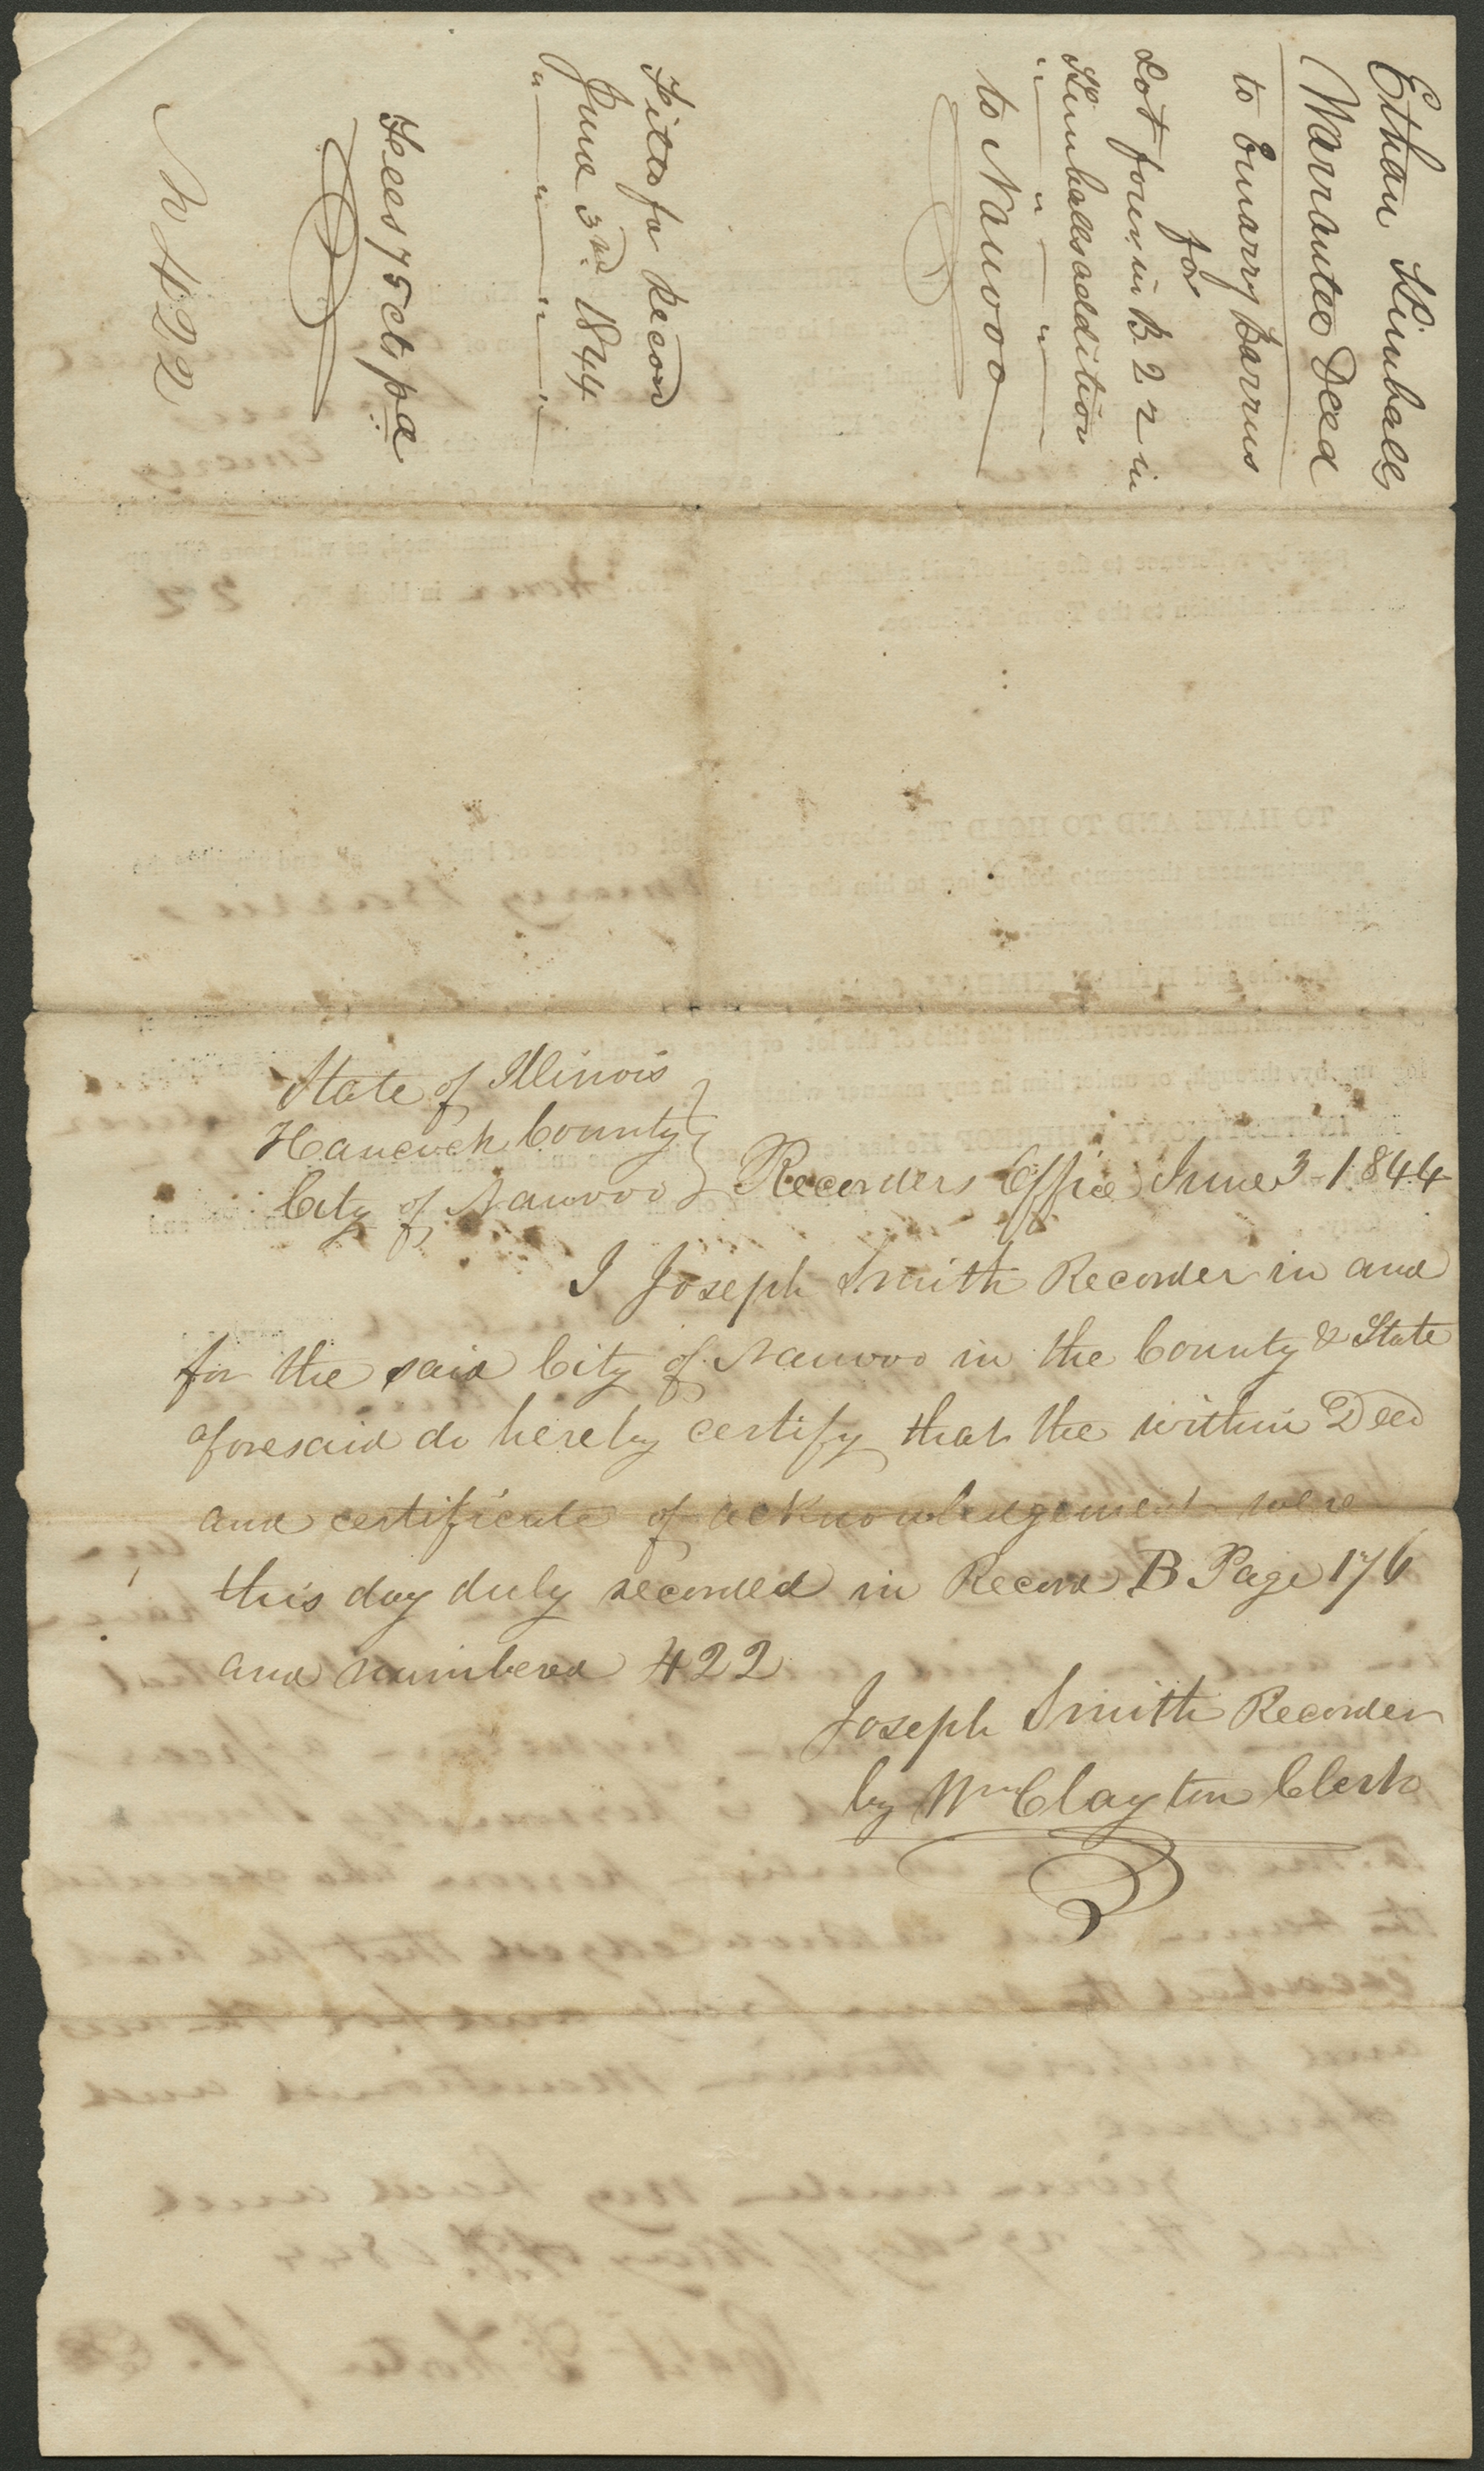 Ethan Kimball
Warrantee Deed
to Emarry Barrus
for
Lot four in B. 22 in
Kimballs addition
" " " "
to Nauvoo
Filed for Record
June 3rd. 1844
" " " "
Fees 75 cts pd
N 422
State of Illinois
Hancock County
City of Nauvoo } Recorders Office June 3 1844
I Joseph Smith Recorder in and
for the said City of Nauvoo in the County & State
aforesaid do hereby certify that the within Deed
and certificate of acknowledgement were
this day duly recorded in Record B Page 176
and numbered 422
Joseph Smith Recorder
by Wm Clayton Clerk